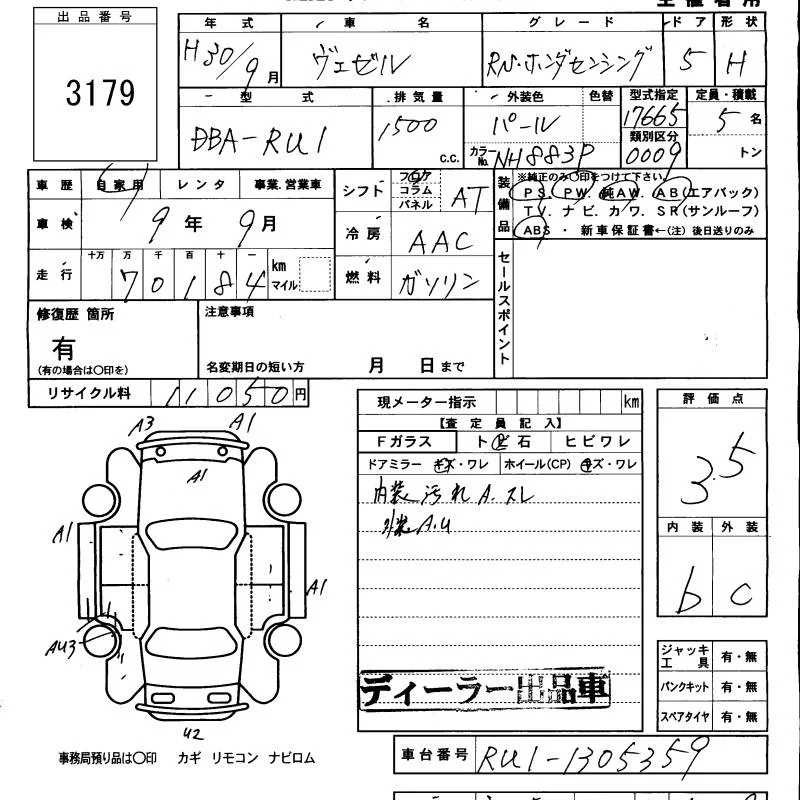 出品番号
3179
年式 車名 グレード ドア 形状
H30/9月 ヴェゼル RS・ホンダセンシング 5 H
型式 排気量 外装色 色替 型式指定 定員・積載
DBA-RU1 1500 c.c. パール カラーNo. NH883P 17665 5名
類別区分 0009 トン
車歴 自家用 レンタ 事業.営業車
車検 9年 9月
走行 十万 万 千 百 十 一 km マイル
70184
シフト フロア コラム パネル AT
冷房 AAC
燃料 ガソリン
装備品 ※純正のみ○印をつけて下さい。
PS. PW. 純AW. AB(エアバック)
TV. ナビ. カワ. SR(サンルーフ)
ABS ・ 新車保証書←(注) 後日送りのみ
セールスポイント
修復歴 箇所
有
(有の場合は○印を)
注意事項
名変期日の短い方 月 日まで
リサイクル料 11050円
現メーター指示 km
【査定員記入】
Fガラス トビ石 ヒビワレ
ドアミラー キズ・ワレ ホイール(CP) キズ・ワレ
内装 汚れ A.スレ
外装 A.U
評価点
3.5
内装 外装
b c
A3 A1
A1
A1
A1
AU3
U2
ジャッキ工具 有・無
パンクキット 有・無
スペアタイヤ 有・無
ディーラー出品車
事務局預り品は○印 カギ リモコン ナビロム
車台番号 RU1-1305359